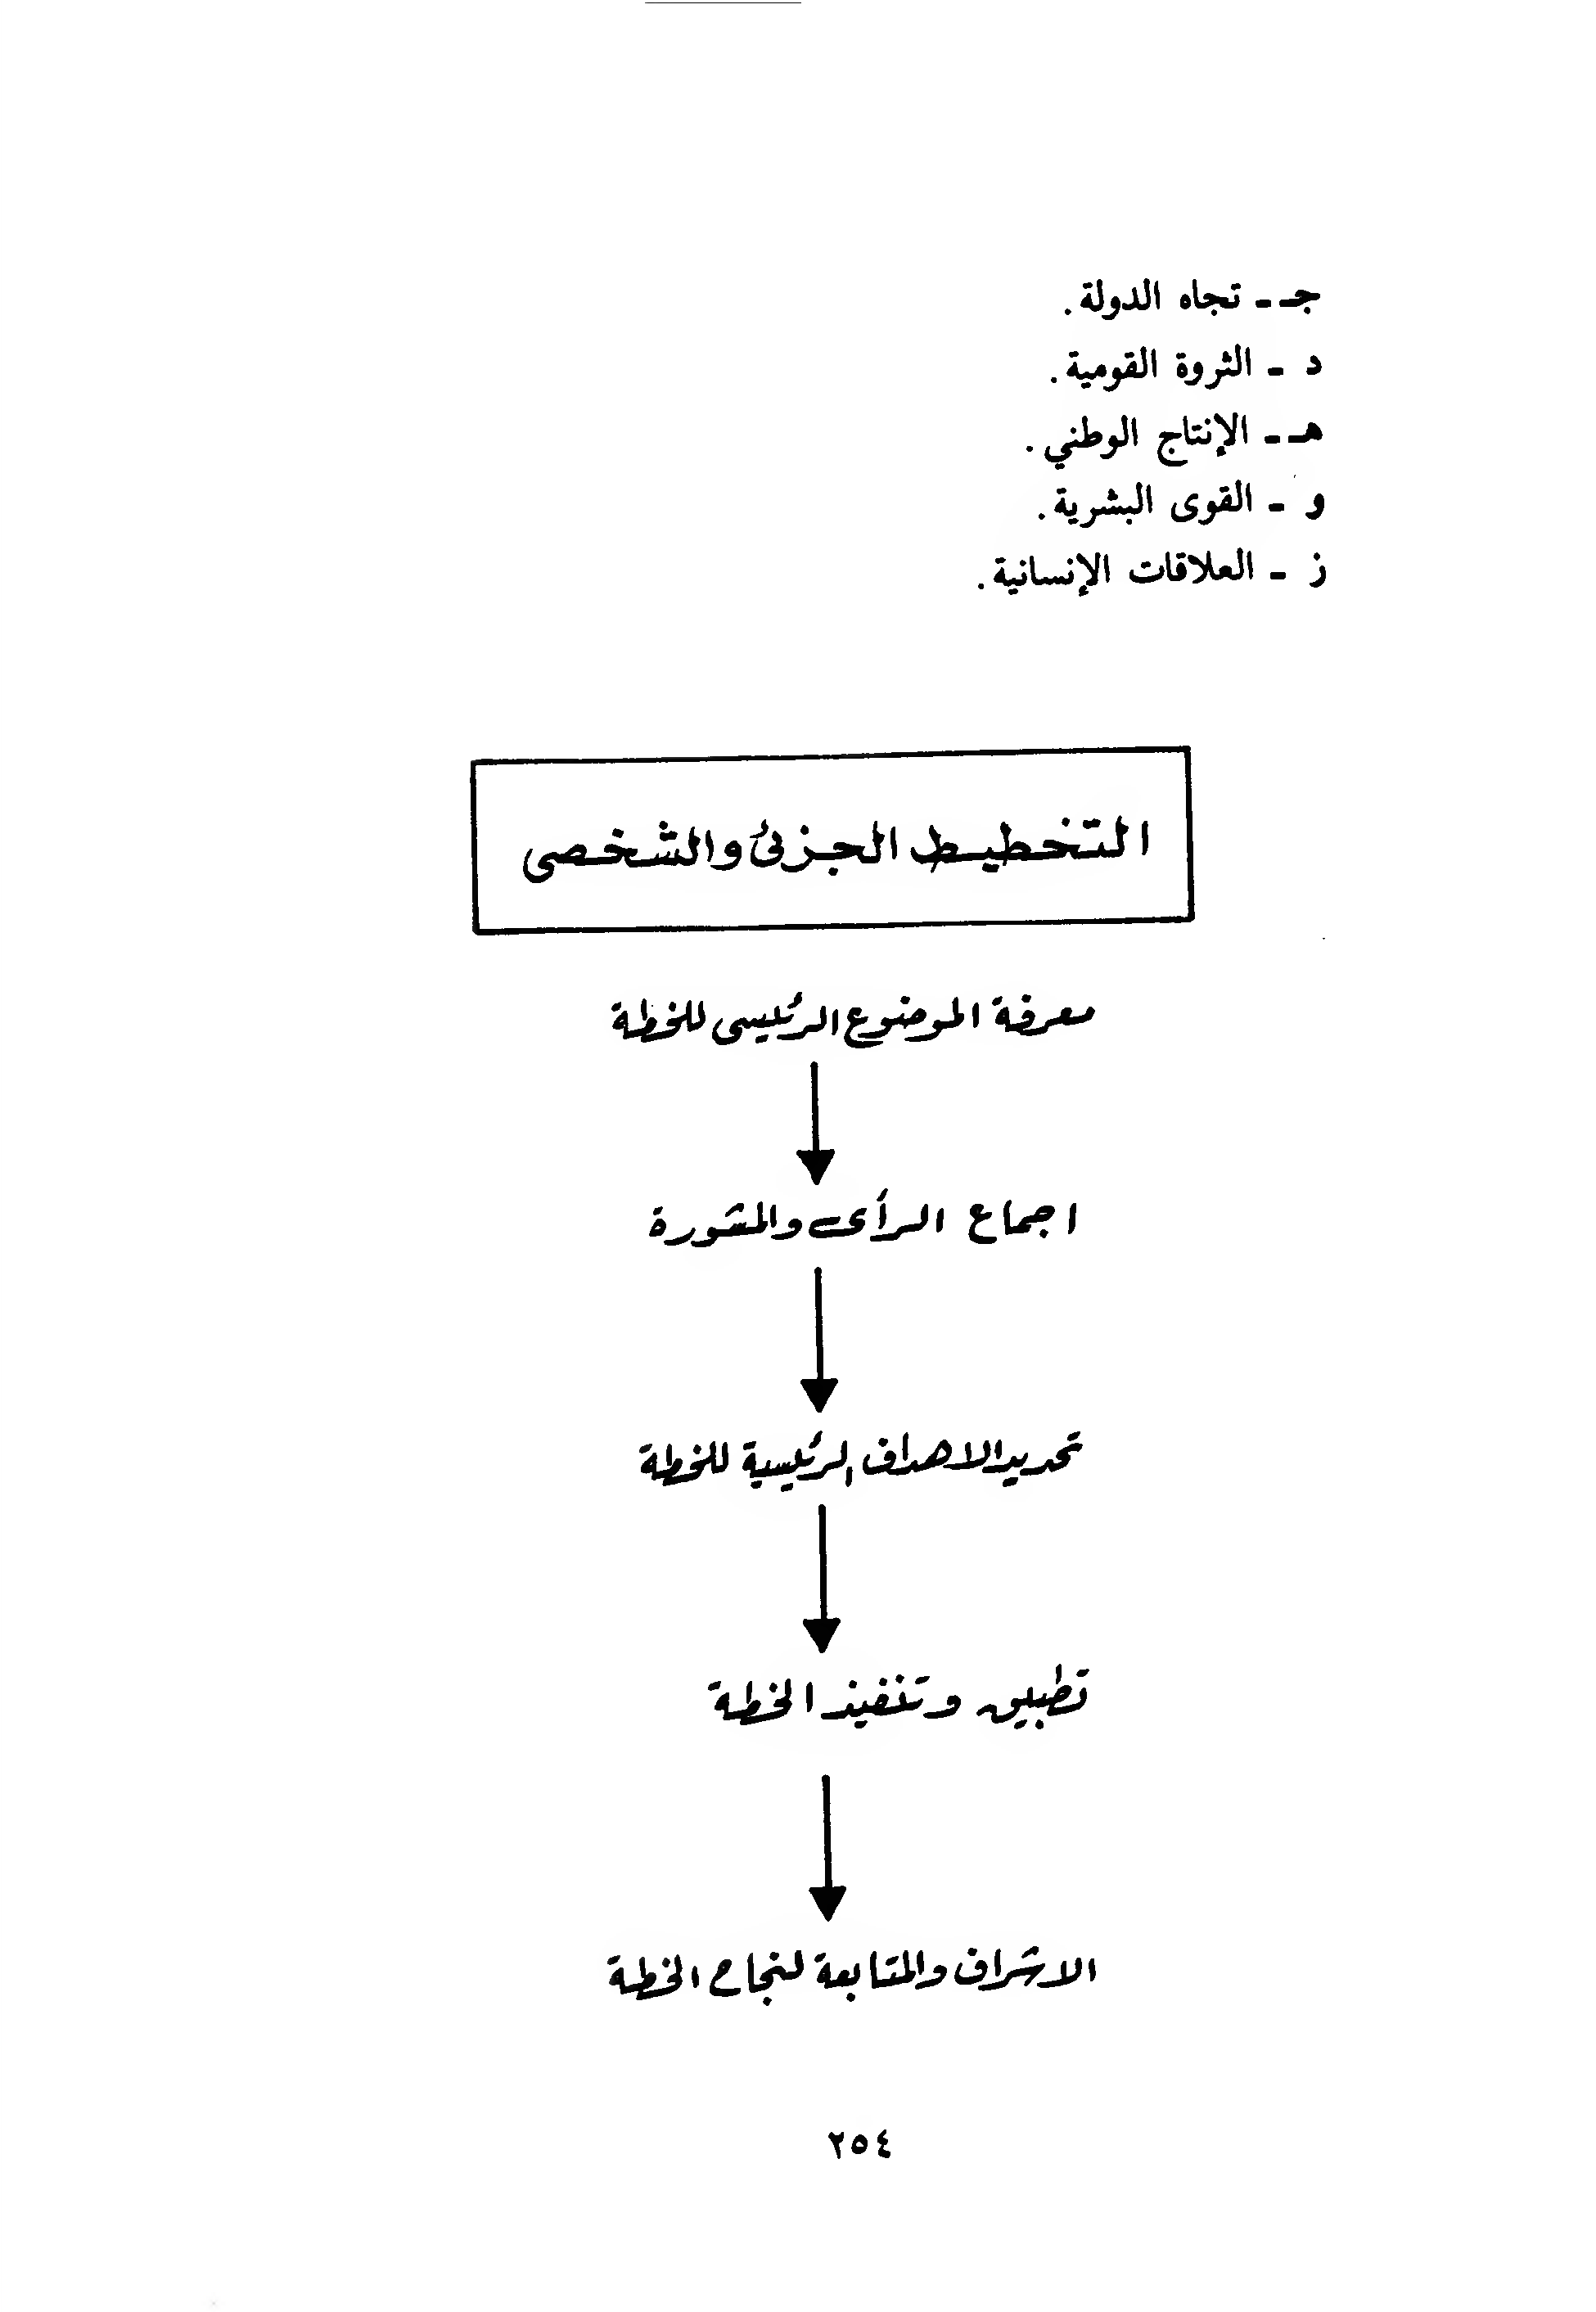 جـ - تجاه الدولة.
د - الثروة القومية.
هـ - الإنتاج الوطني.
و - القوى البشرية.
ز - العلاقات الإنسانية.
التخطيط الجزئ والشخصى
معرفة الموضوع الرئيسى للخطة
اجماع الرأى والمشورة
تحديد الاهداف الرئيسية للخطة
تطبيق وتنفيذ الخطة
الاشراف والمتابعة لنجاح الخطة
٢٥٤